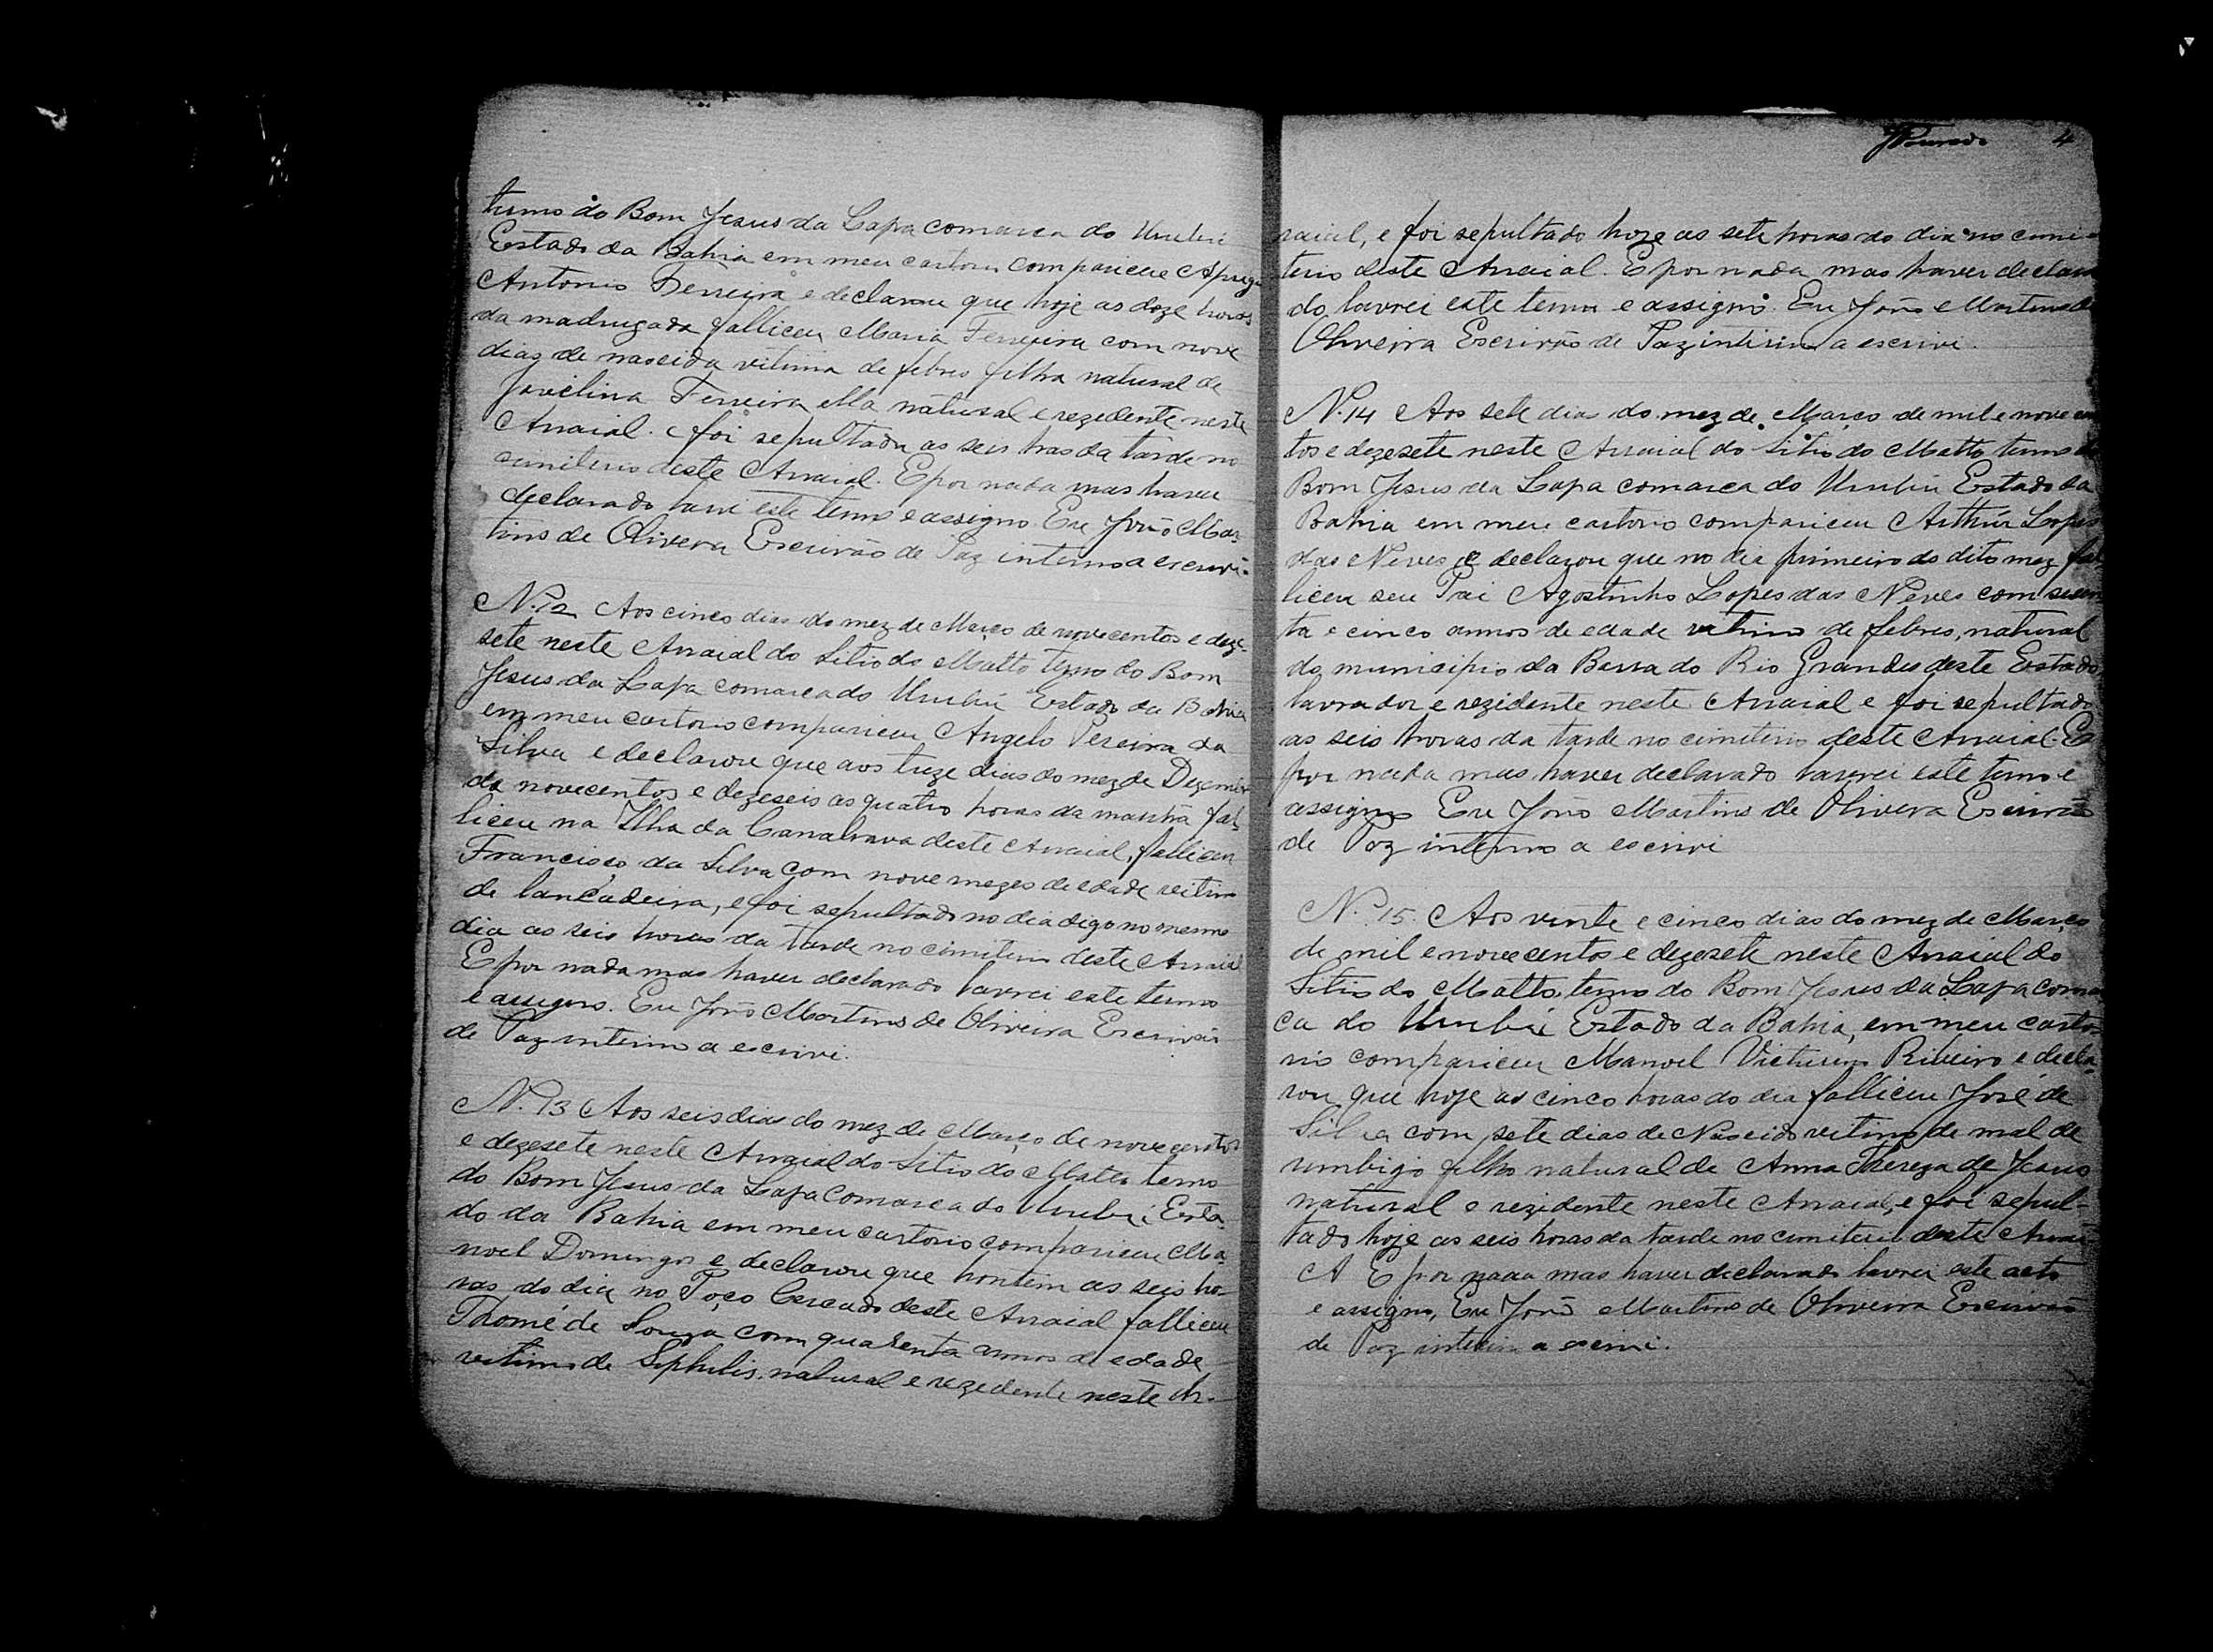 termo do Bom Jesus da Lapa comarca do Urubú
Estado da Bahia em meu cartorio compariceu
Antonio Ferreira e declarou que hoje as doze horas
da madrugada falliceu Maria Ferreira com nove
dias de nascida vitima de febres filha natural de
Jovelina Ferreira ella natural e rezedente neste
Arraial. e foi sepultada as seis hras da tarde no
cimiterio deste Arraial. E por nada mas haver
declarado lavrei este termo e assigno. Eu João Mar-
tins de Olivera Escrivão de Paz interino a escrevi.
N. 12 Aos cinco dias do mez de Março de novecentos e deze-
sete neste Arraial do Sitio do Matto termo do Bom
Jesus da Lapa comarca do Urubú Estado da Bahia
em meu cartorio compariceu Angelo Pereira da
Silva e declarou que aos treze dias do mez de Dezembr
de novecentos e dezeseis as quatro horas da manhã fal-
liceu na Ilha da Canabrava deste Arraial, falliceu
Francisco da Silva com nove mezes de edade vitima
de lancadeira, e foi sepultado no dia digo no mesmo
dia as seis horas da tarde no cimiterio deste Arraial
E por nada mas haver declarado lavrei este termo
e assigno. Eu João Martins de Oliveira Escrivão
de Paz interino a escrivi.
N. 13 Aos seis dias do mez de Março de novecentos
e dezesete neste Arraial do Sitio do Matto termo
do Bom Jesus da Lapa Comarca do Urubú Esta-
do da Bahia em meu cartorio compariceu Ma-
noel Domingos e declarou que hontem as seis ho-
ras do dia no Poço Cercado deste Arraial falliceu
Thomé de Souza com quarenta annos de edade
vitimo de Siphilis, natural e rezedente neste Ar-
4
raial, e foi sepultado hoze as sete horas do dia no cimi-
terio deste Arraial. E por nada mas haver declara
do lavrei este termo e assigno. Eu João Martins de
Oliveira Escrivão de Paz intirino a escrivi.
N. 14 Aos sete dia do mez de Março de mil e novecen
tos e dezesete neste Arraial do Sitio do Matto termo do
Bom Jesus da Lapa comarca do Urubú Estado da
Bahia em meu cartorio compariceu Arthur Lopes
das Neves e declarou que no dia primeiro do dito mez fal
liceu seu Pai Agostinho Lopes das Neves com
ta e cinco annos de edade vitimo de febres, natural
do municipio da Barra do Rio Grandes deste Estado,
lavrador e rezidente neste Arraial e foi sepultado
as seis horas da tarde no cimiterio deste Arraial. E
por nada mas haver declarado lavrei este termo e
assigno Eu João Martins de Olivera Escrivão
de Paz interino a escrivi
N. 15. Aos vinte e cinco dias do mez de Março
de mil e novecentos e dezesete neste Arraial do
Sitio do Matto, termo do Bom Jesus da Lapa comar
ca do Urubú Estado da Bahia, em meu carto-
rio compariceu Manoel Ribeiro e decla-
rou que hoje as cinco horas do dia falliceu José da
Silva com sete dias de Nascido vitimo de mal de
umbigo filho natural de Anna Thereza de Jesus
natural e rezidente neste Arraial, e foi sepul-
tado hoje as seis horas da tarde no cimiterio deste Arrai
A E por nada mas haver declarado lavrei este acto
e assigno, Eu João Martins de Oliveira Escrivão
de Paz interino a escrivi.